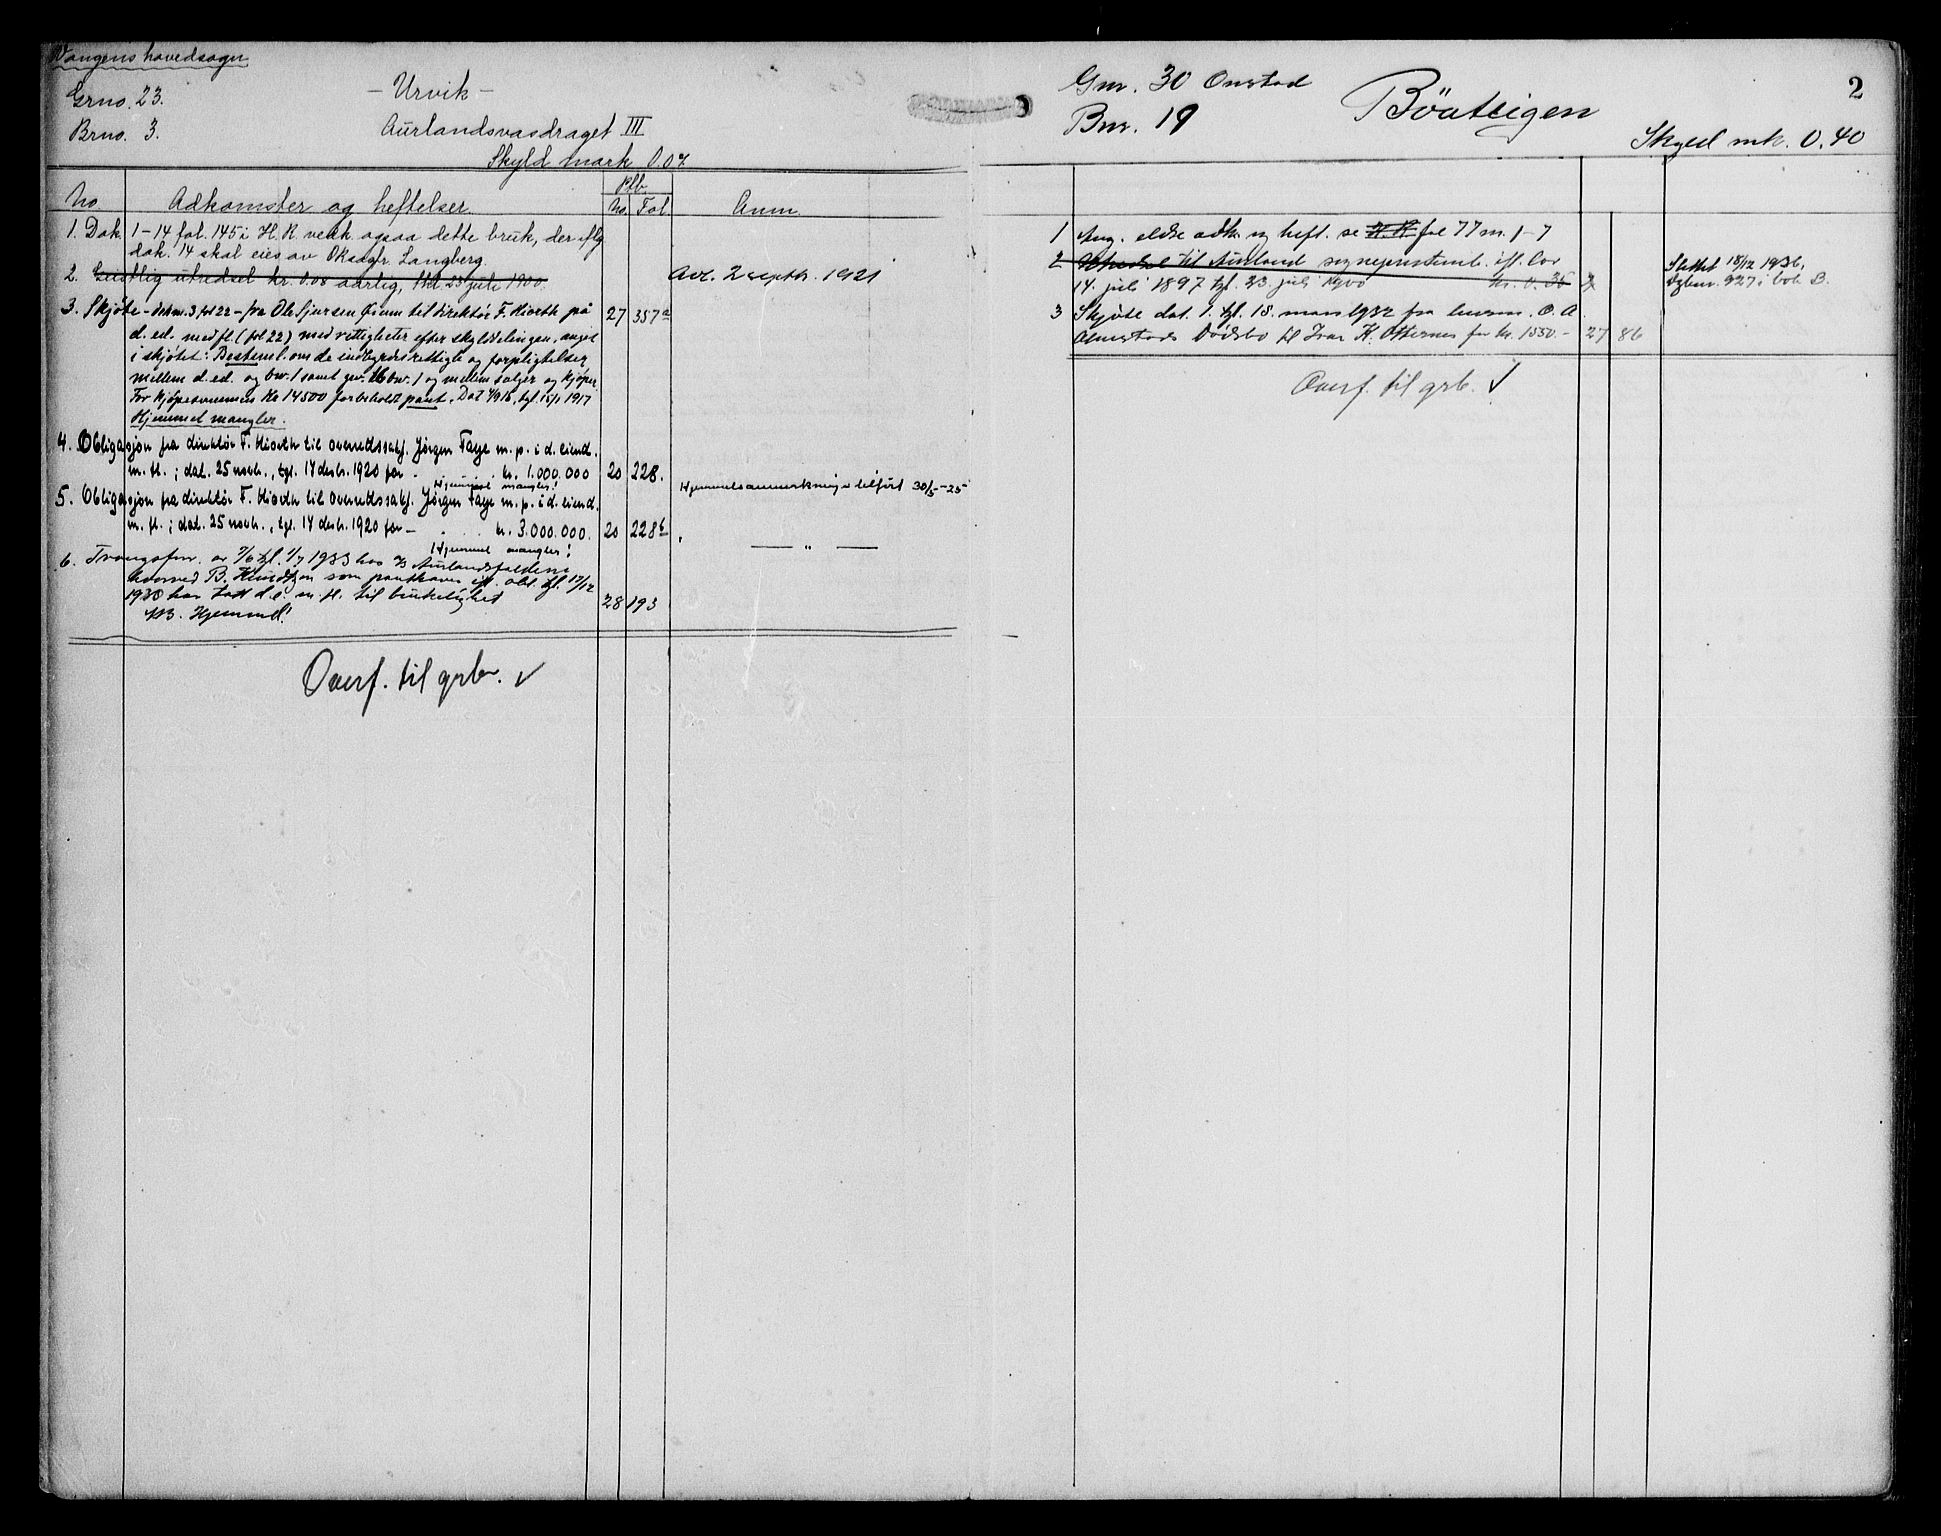 Vangens hovedsogn
Grno. 23.
Brno. 3.
- Urvik -
Aurlandsvasdraget III
Skyld mark 0.07
No. Adkomster og heftelser. Pfb. No. Fol Anm.
1. Dok. 1-14 fol. 145 i H.R vedk. ogsaa dette bruk, der iflg
dok. 14 skal eies av O. Langberg.
2. Geistlig utredsel kr. 0.08 aarlig, thl. 23 juli 1900. Avl. 2 septb. 1921
3. Skjöte - dok nr. 3 fol 22 - fra Ole Sjursen til direktör F. Hiorth på 27 357a
d. ed. med fl. (fol 22) med rettigheter efter skylddelingen, anget
i skjötet: Besteml. om de indbyrdes rettigh. og forpligtelser
mellem d. ed. og br. 1 samt gr. 16 br. 1 og mellem sælger og kjöper
For kjöpesummen Kr 14500 forbeholdt pant. Dat 4/9 16, tgl. 15/1 1917
Hjemmel mangler.
4. Obligasjon fra direktör F. Hiorth til overrettssakf. Jörgen Faye m. p. i d. eiend.
m. fl.; dat. 25 novb., tgl. 17 desb. 1920 for - kr. 1.000.000 20 228.
Hjemmel mangler!
5. Obligasjon fra direktör F. Hiorth til overrettssakf. Jörgen Faye m. p. i d. eiend. Hjemmelsanmerkning tilfört 30/5-25
m. fl.; dat. 25 novb., tgl. 17 desb. 1920 for - kr. 3.000.000. 20 228b
Hjemmel mangler! — " —
6. Tvangsfor. av 7/6 tgl. 1/7 1933 hos Aurlandsfaldene
hvorved B. som panthaver ifl. obl. tgl. 17/12
1920 har tatt d.e. m. fl. til brukelighet 28 193
NB. Hjemmel!
Overf. til grb. ✓
2
Gnr. 30 Onstad
Bnr. 19
Böateigen
Skyld mk. 0.40
1 Ang. eldre adk. og heft. se H.R. fol 77 nr. 1-7
2 til Aurland sogneprestemb. ifl. lov Slettet 18/12 1936,
14. juli 1897 tgl. 23 juli 1900 kr. 0.36 Dgbnr. 927 i bok B.
3 Skjöte dat. 1. tgl. 15. mars 1932 fra O. A.
Onstads Dödsbo til Ivar K. Otternes for kr. 1550.- 27 86
Overf. til grb. ✓